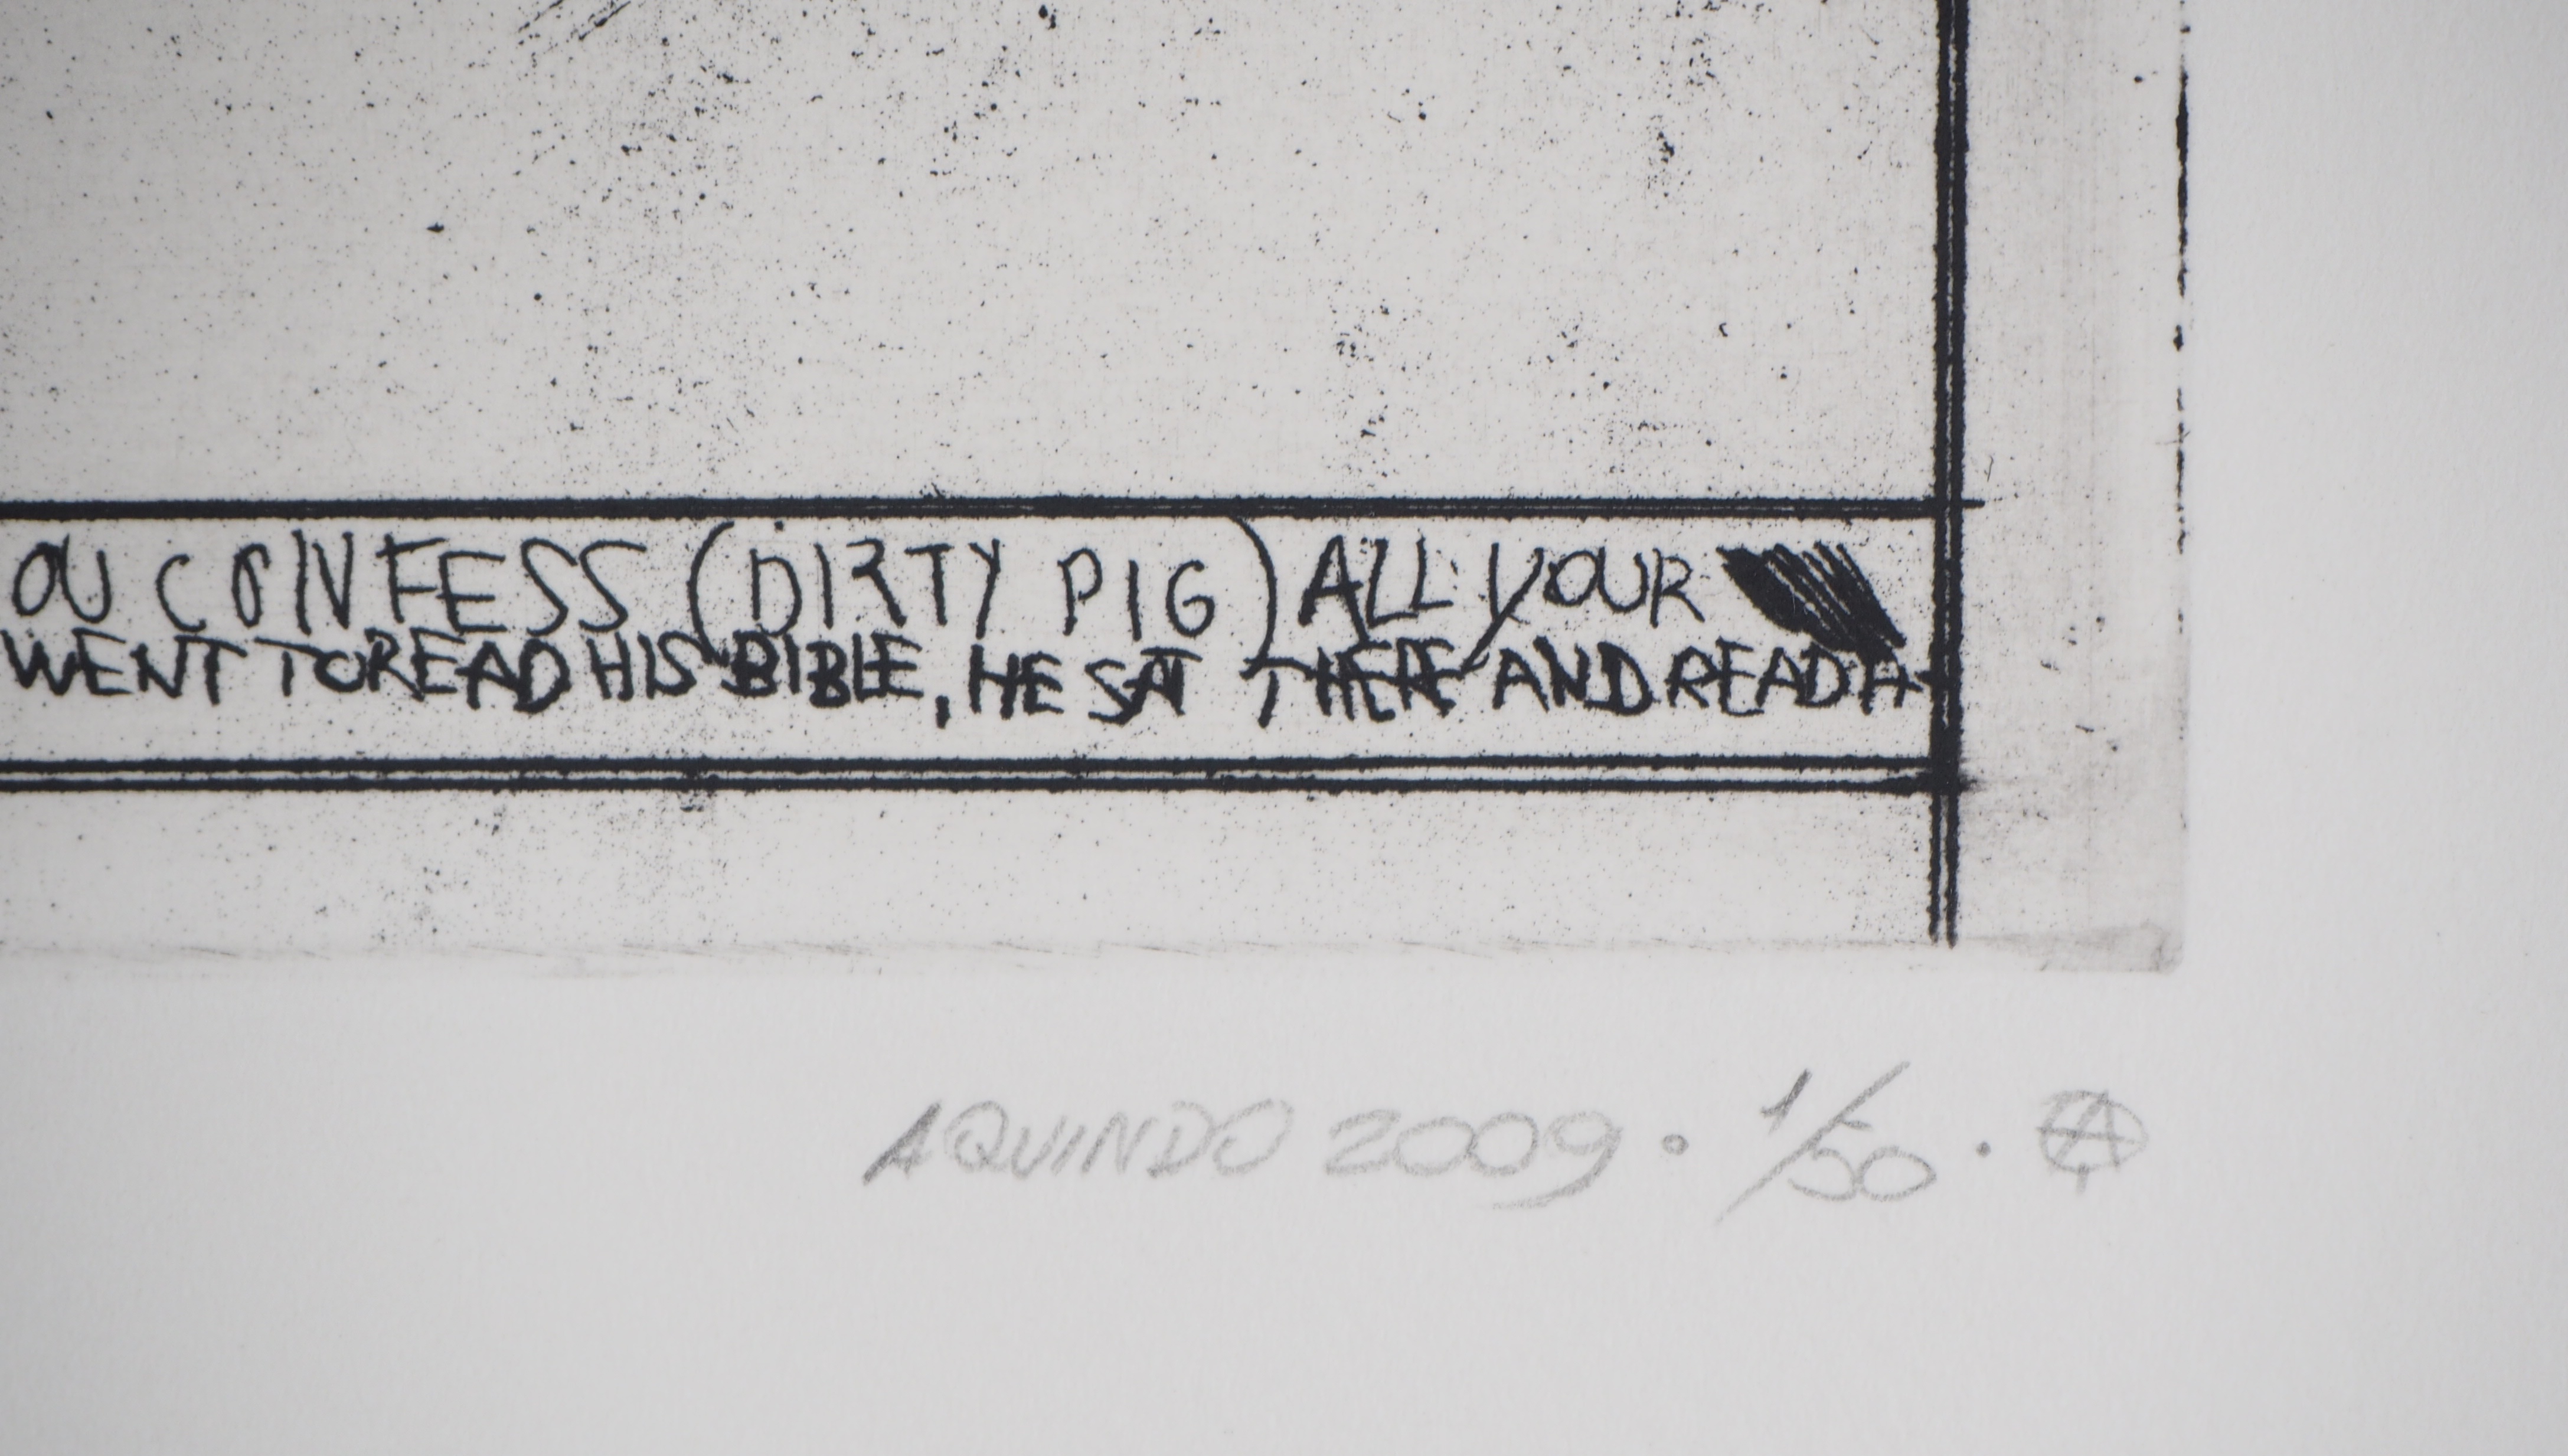 OU CONFESS (DIRTY PIG) ALL YOUR
WENT TO READ HIS BIBLE, HE SAT THERE AND READ A
AQUINDO 2009 • 1/50 •